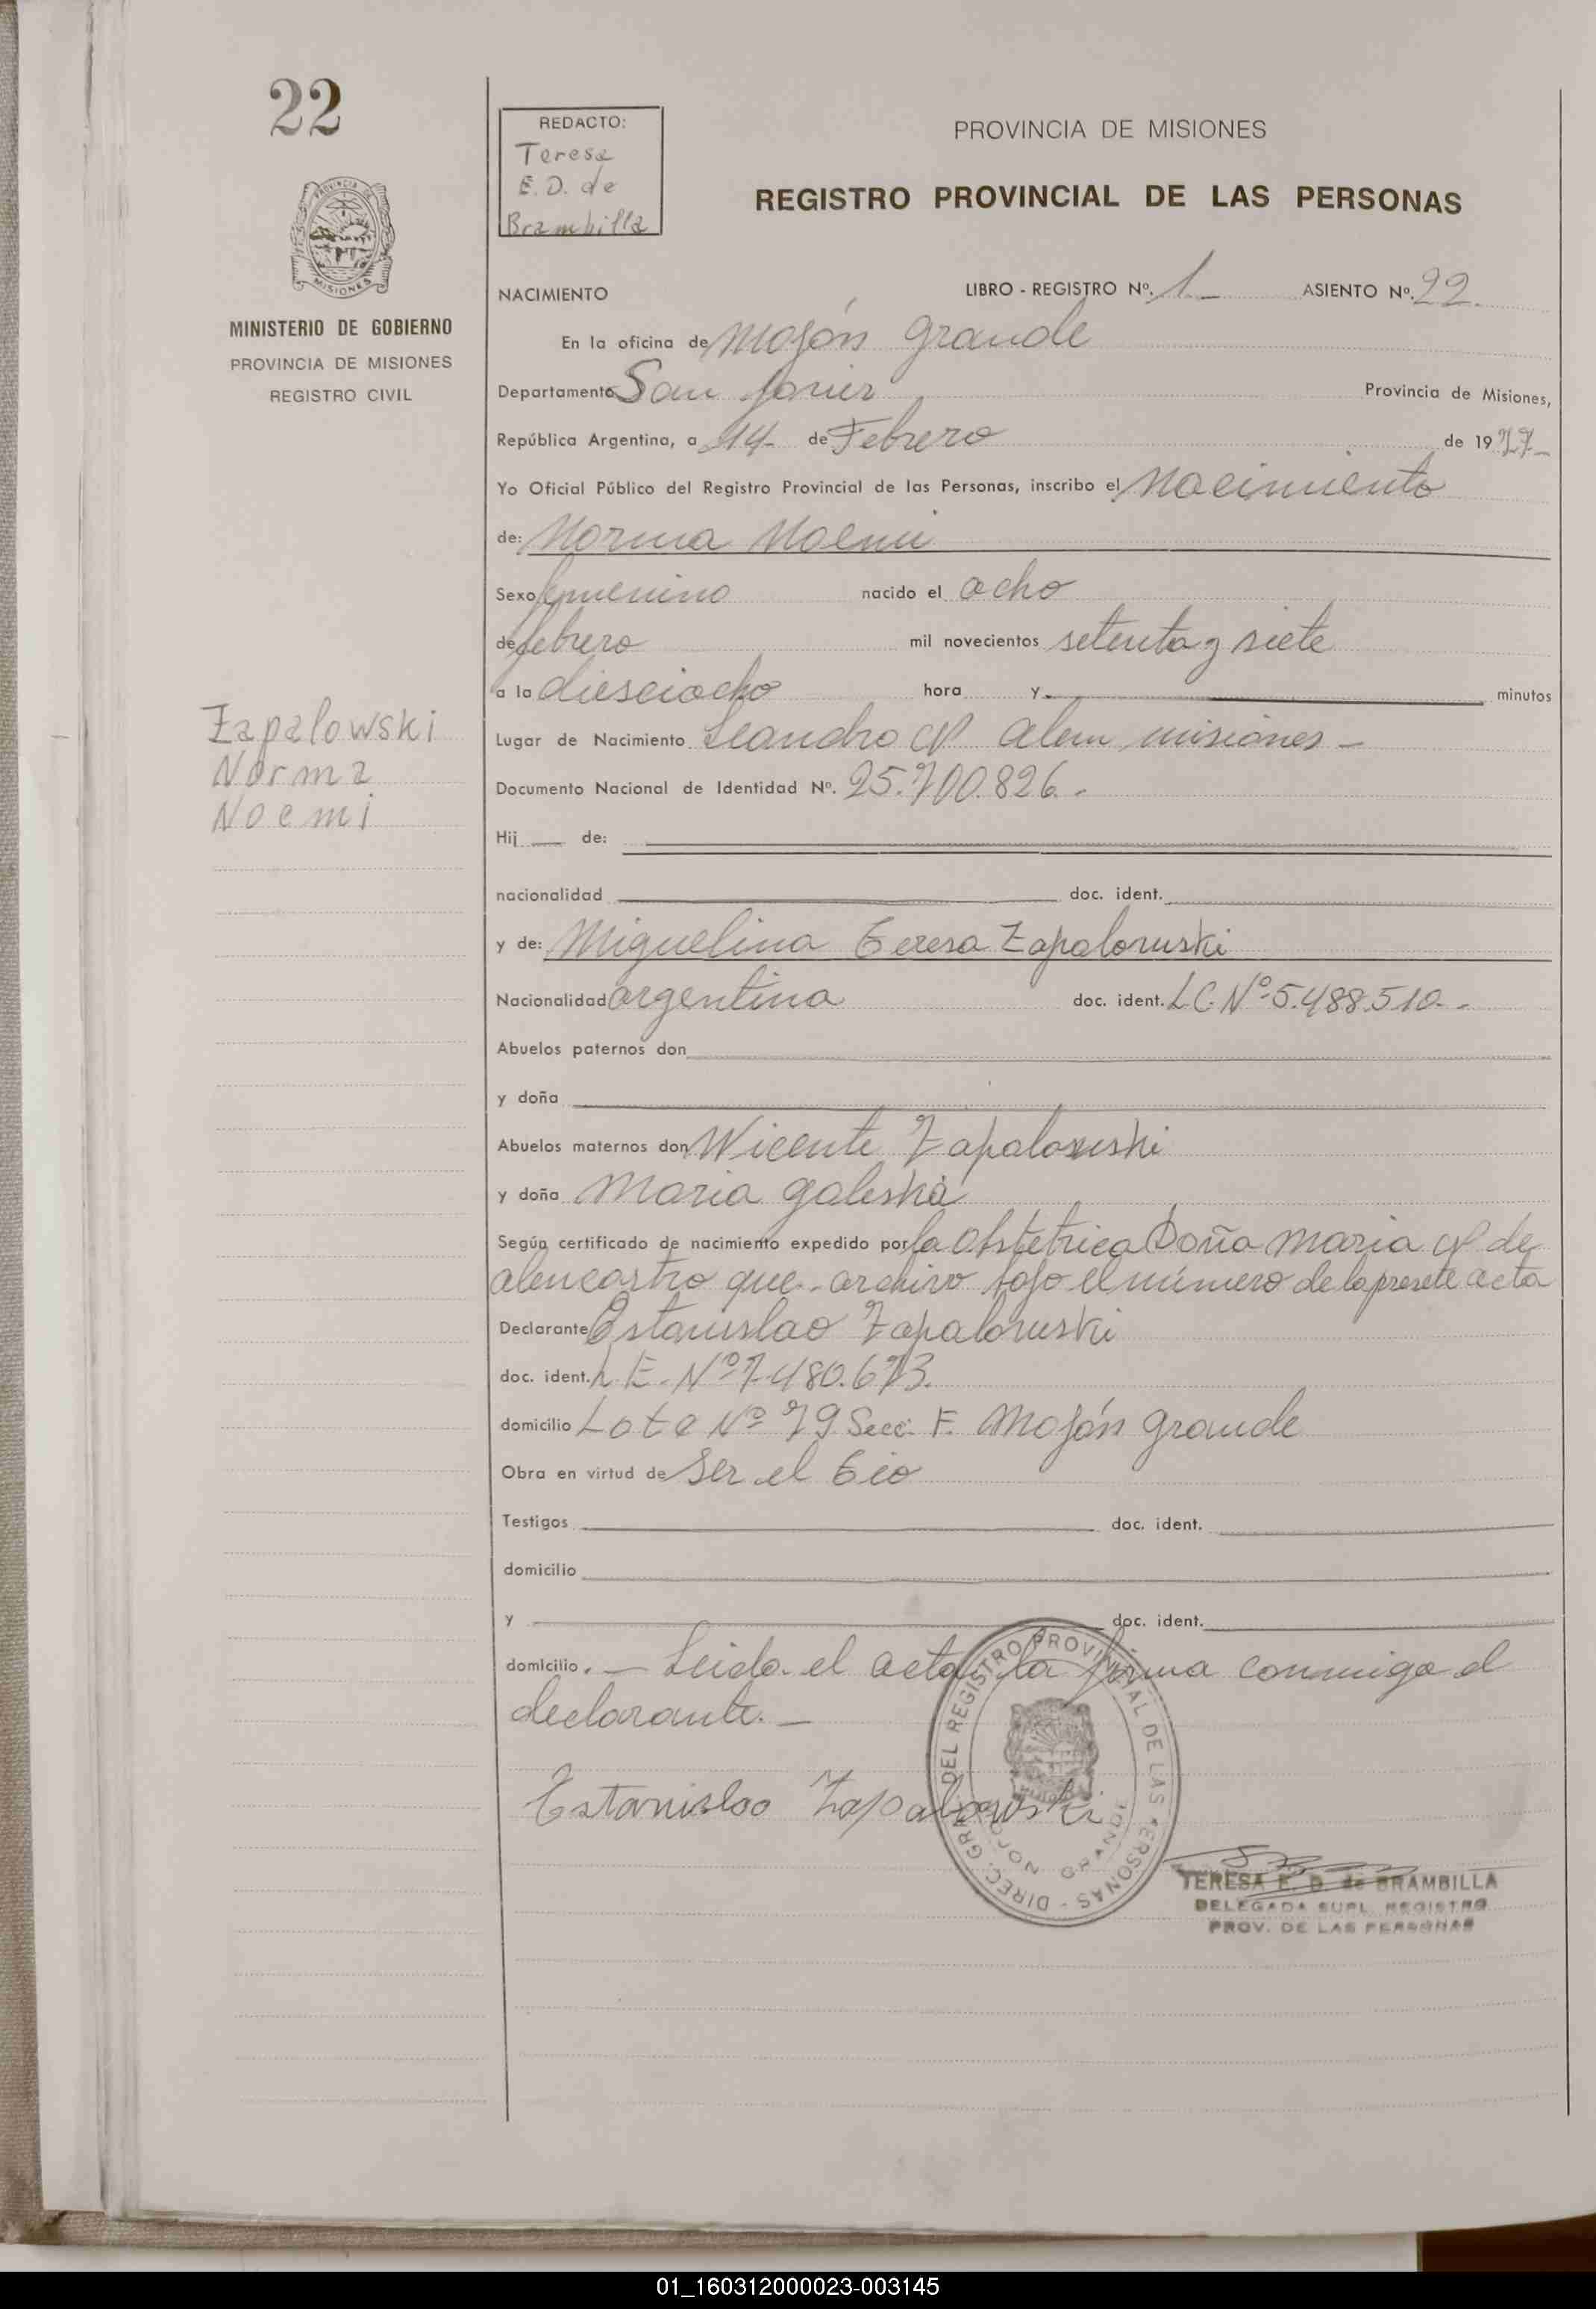 22
REDACTO:
Teresa
E. D. de
Brambilla
PROVINCIA DE MISIONES
REGISTRO PROVINCIAL DE LAS PERSONAS
PROVINCIA DE
MISIONES
MINISTERIO DE GOBIERNO
PROVINCIA DE MISIONES
REGISTRO CIVIL
NACIMIENTO LIBRO - REGISTRO Nº. 1 ASIENTO Nº. 22.
En la oficina de Mojón Grande
Departamento San Javier Provincia de Misiones,
República Argentina, a 14 de Febrero de 1977
Yo Oficial Público del Registro Provincial de las Personas, inscribo el Nacimiento
de: Norma Noemi
Sexo femenino nacido el ocho
de febrero mil novecientos setenta y siete
a la diesciocho hora y minutos
Lugar de Nacimiento Leandro N Alem misiones -
Documento Nacional de Identidad Nº. 25.700.826.-
Zapalowski
Norma
Noemi
Hij de:
nacionalidad doc. ident.
y de: Miguelina Teresa Zapalowski
Nacionalidad argentina doc. ident. L.C. Nº 5.488.510.-
Abuelos paternos don
y doña
Abuelos maternos don Wicente Zapalowski
y doña Maria Galeska
Según certificado de nacimiento expedido por la Obstetrica Doña Maria N de
Alencastro que archivo bajo el número de la presete acta
Declarante Estanislao Zapalowski
doc. ident. L.E. Nº 7.480.673.
domicilio Lote Nº 79 Secc. F. Mojón Grande
Obra en virtud de Ser el Tio
Testigos doc. ident.
domicilio
y doc. ident.
domicilio. - Leida el acta la firma conmigo el
declarante. -
Estanislao Zapalowski
DIREC. GRAL. DEL REGISTRO PROVINCIAL DE LAS PERSONAS -
MOJON GRANDE
TERESA E. D. de BRAMBILLA
DELEGADA SUPL. REGISTRO
PROV. DE LAS PERSONAS
01_160312000023-003145